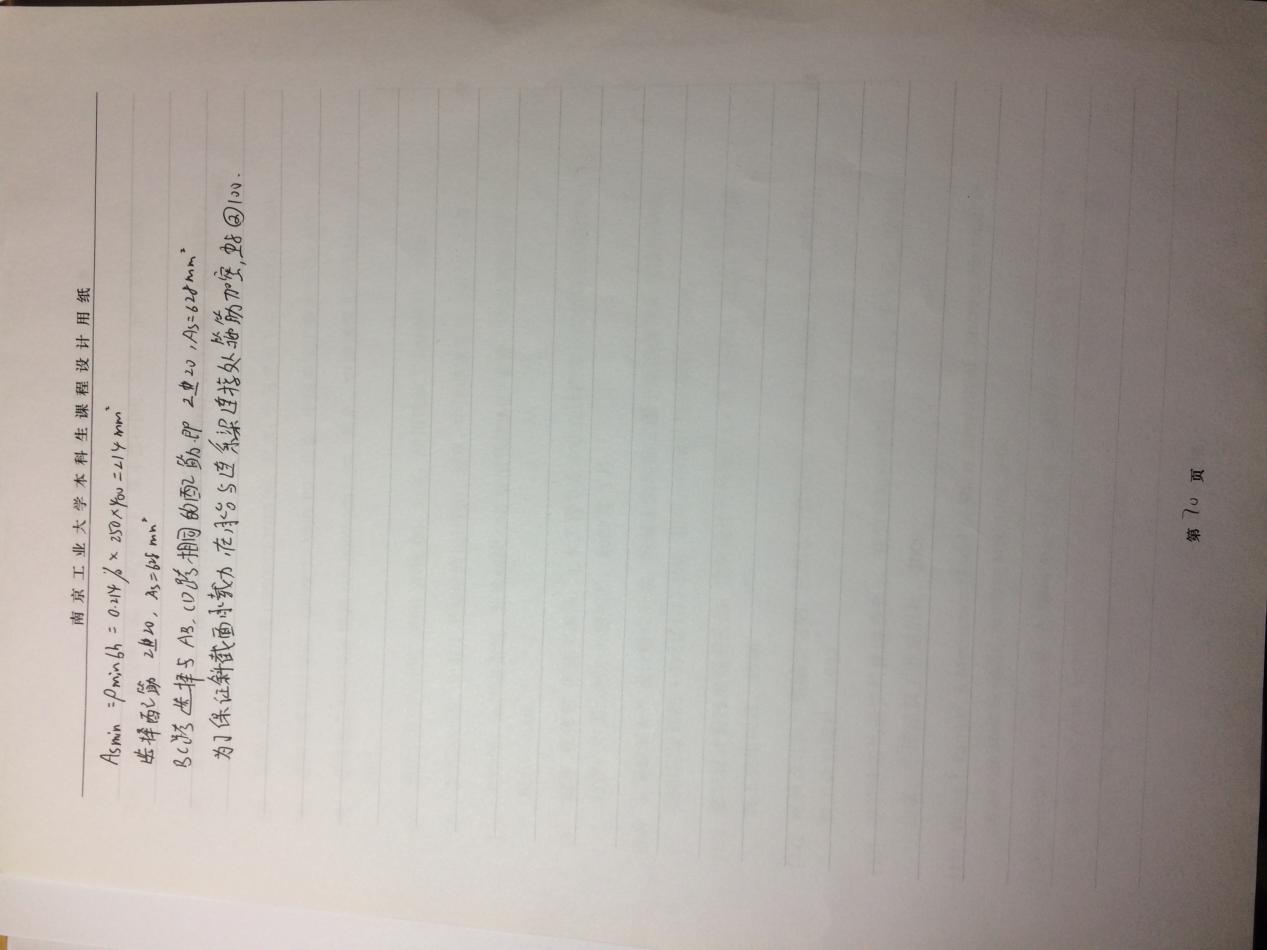 南京工业大学本科生课程设计用纸
Asmin = ρmin bh = 0.214% × 250×400 = 214mm²
选择配筋 2⏀20, As=628mm²
BC跨选择与AB、CD跨相同的配筋.即 2⏀20, As=628mm²
为了保证斜截面承载力,在承台与连系梁连接处箍筋加密,⏀8@100.
第 70 页